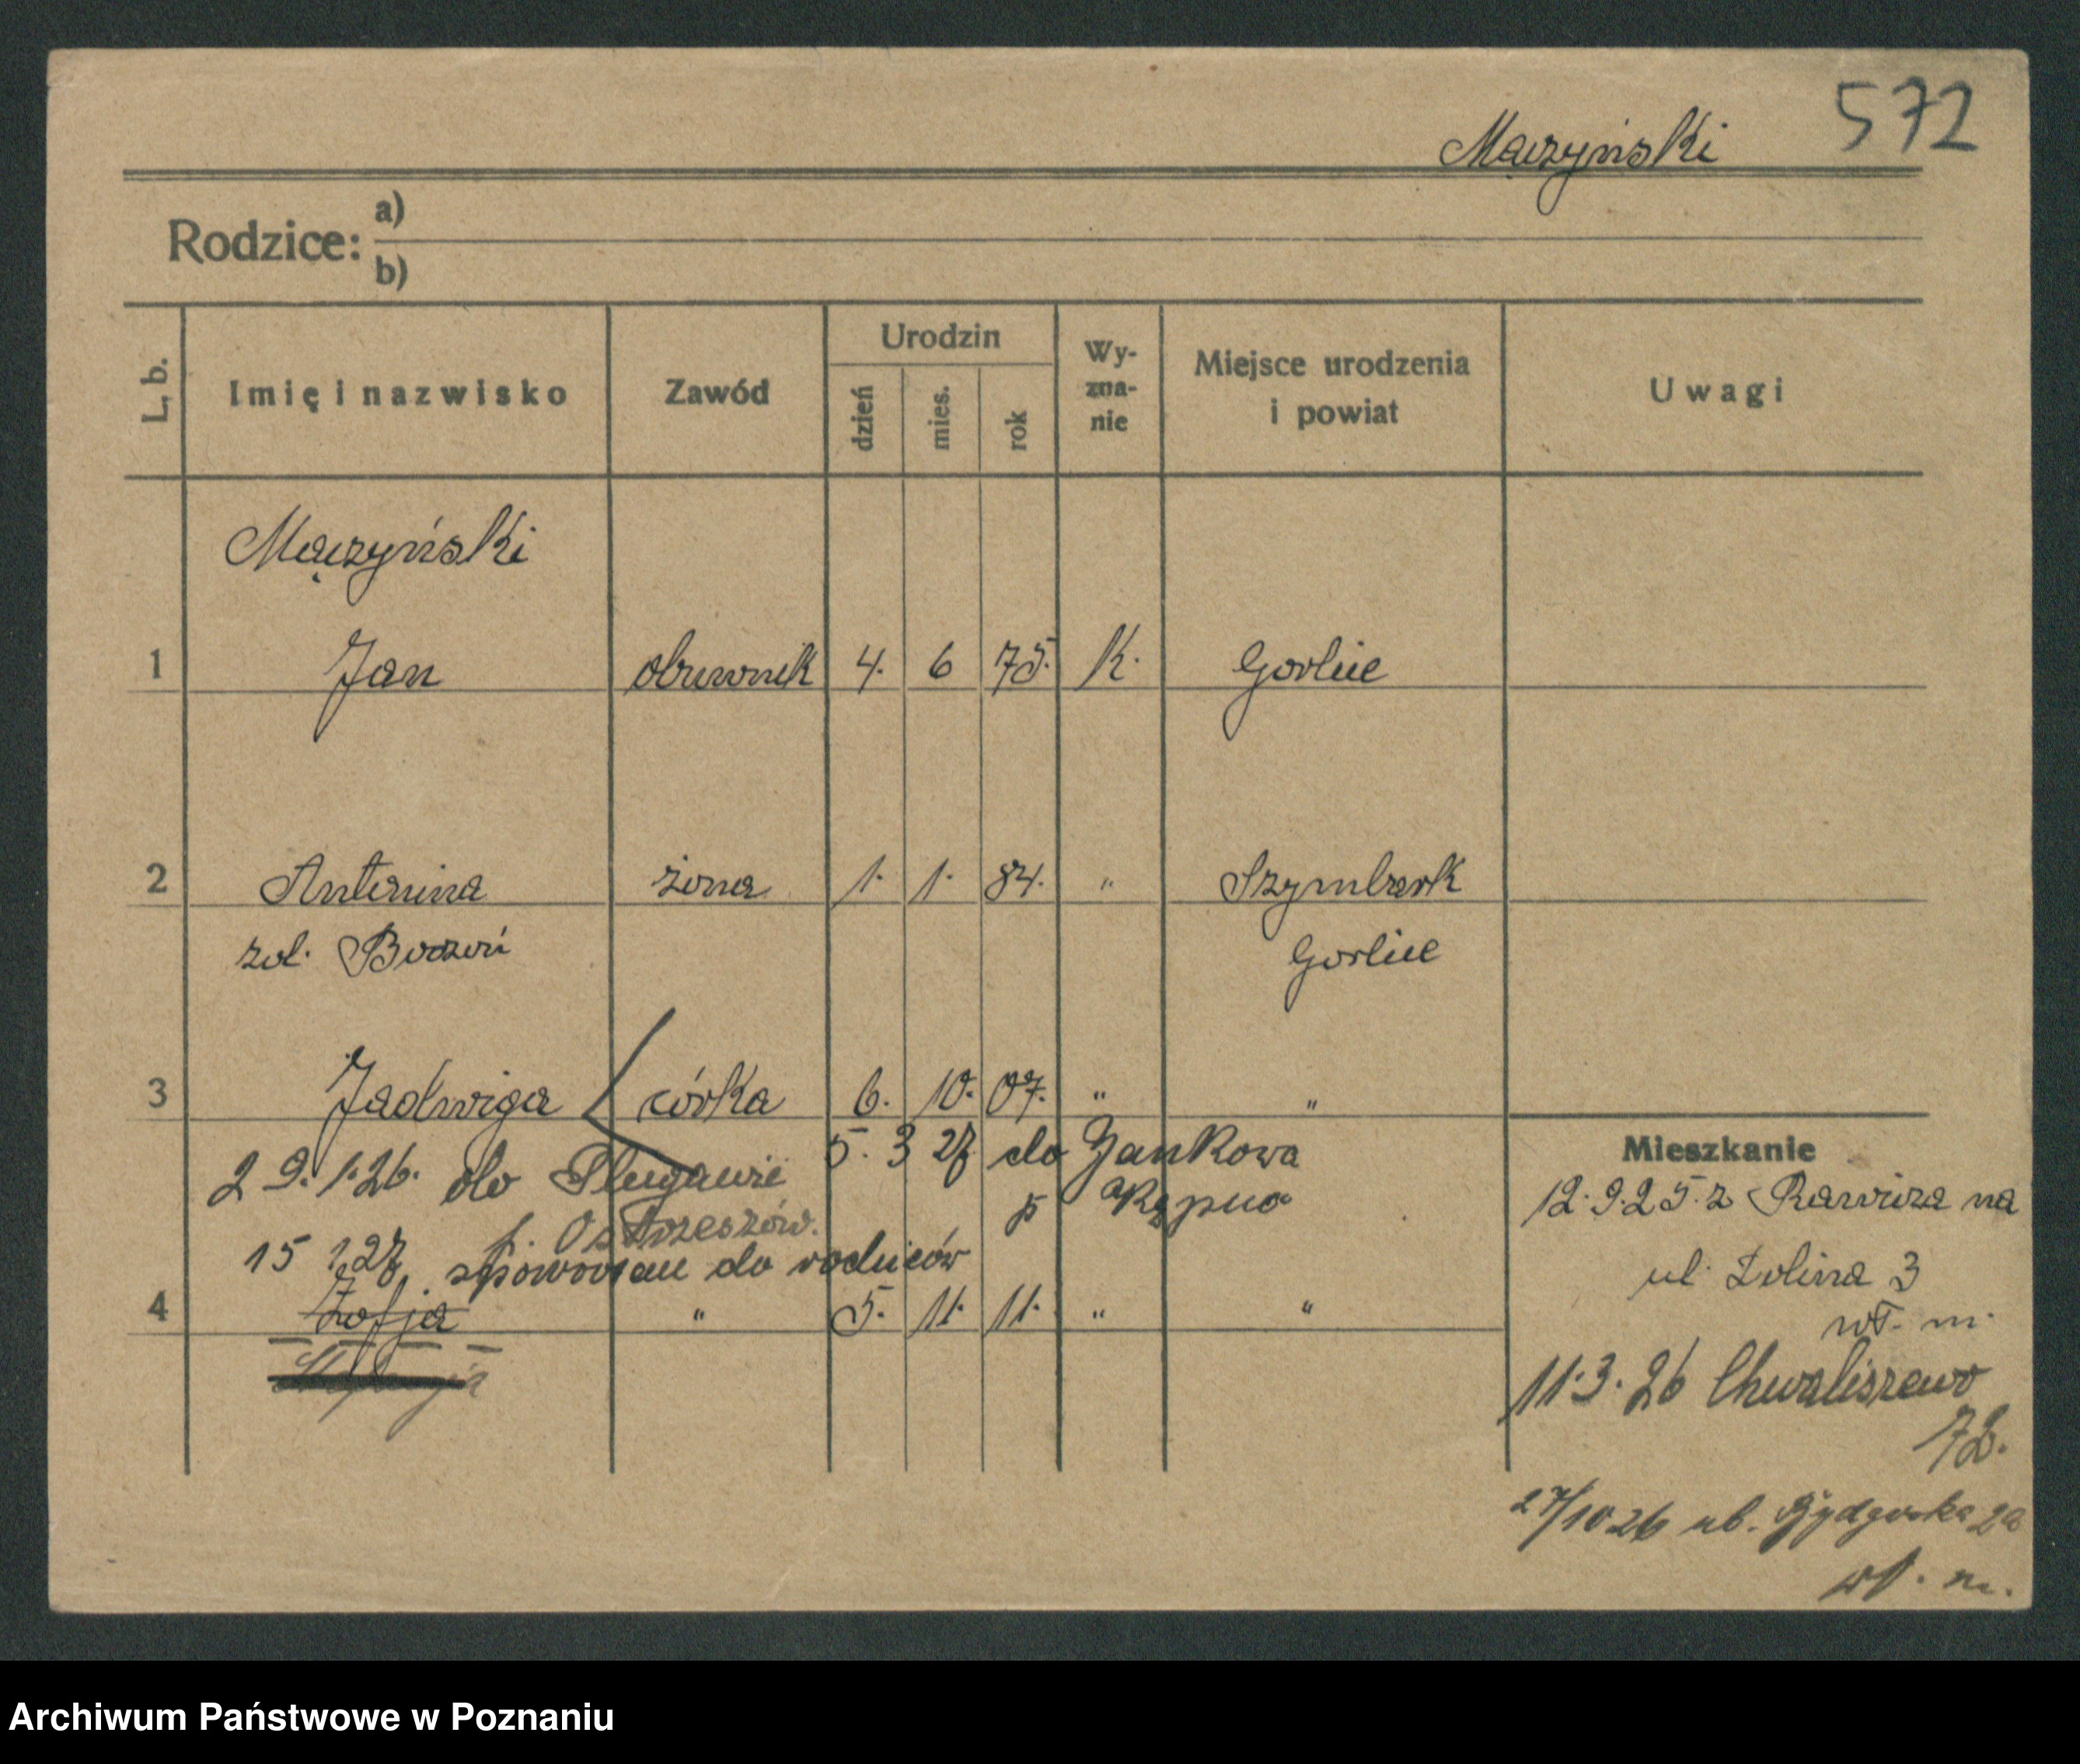 Mączyński 572
Rodzice: a)
b)
L. b. Imię i nazwisko Zawód Urodzin dzień mies. rok Wy-zna-nie Miejsce urodzenia i powiat Uwagi
Mączyński
1 Jan obuwnik 4. 6 75. K. Gorlice
2 Antonina żona 1. 1. 84. " Szymbark
zd. Gorlice
3 Jadwiga córka 6. 10. 07. " "
29.1.26. do Pługawic 5. 3 27 do Jankowa
p. Ostrzeszów. p Kępno
15 1.27 spowotem do rodziców
4 Zofja " 5. 11. 11. " "
Mieszkanie
12.9.25. z Rawicza na
ul. 3
wł. m.
11.3.26 Chwaliszewo
72.
27/10 26 ul. Bydgoska
wł. m.
Archiwum Państwowe w Poznaniu